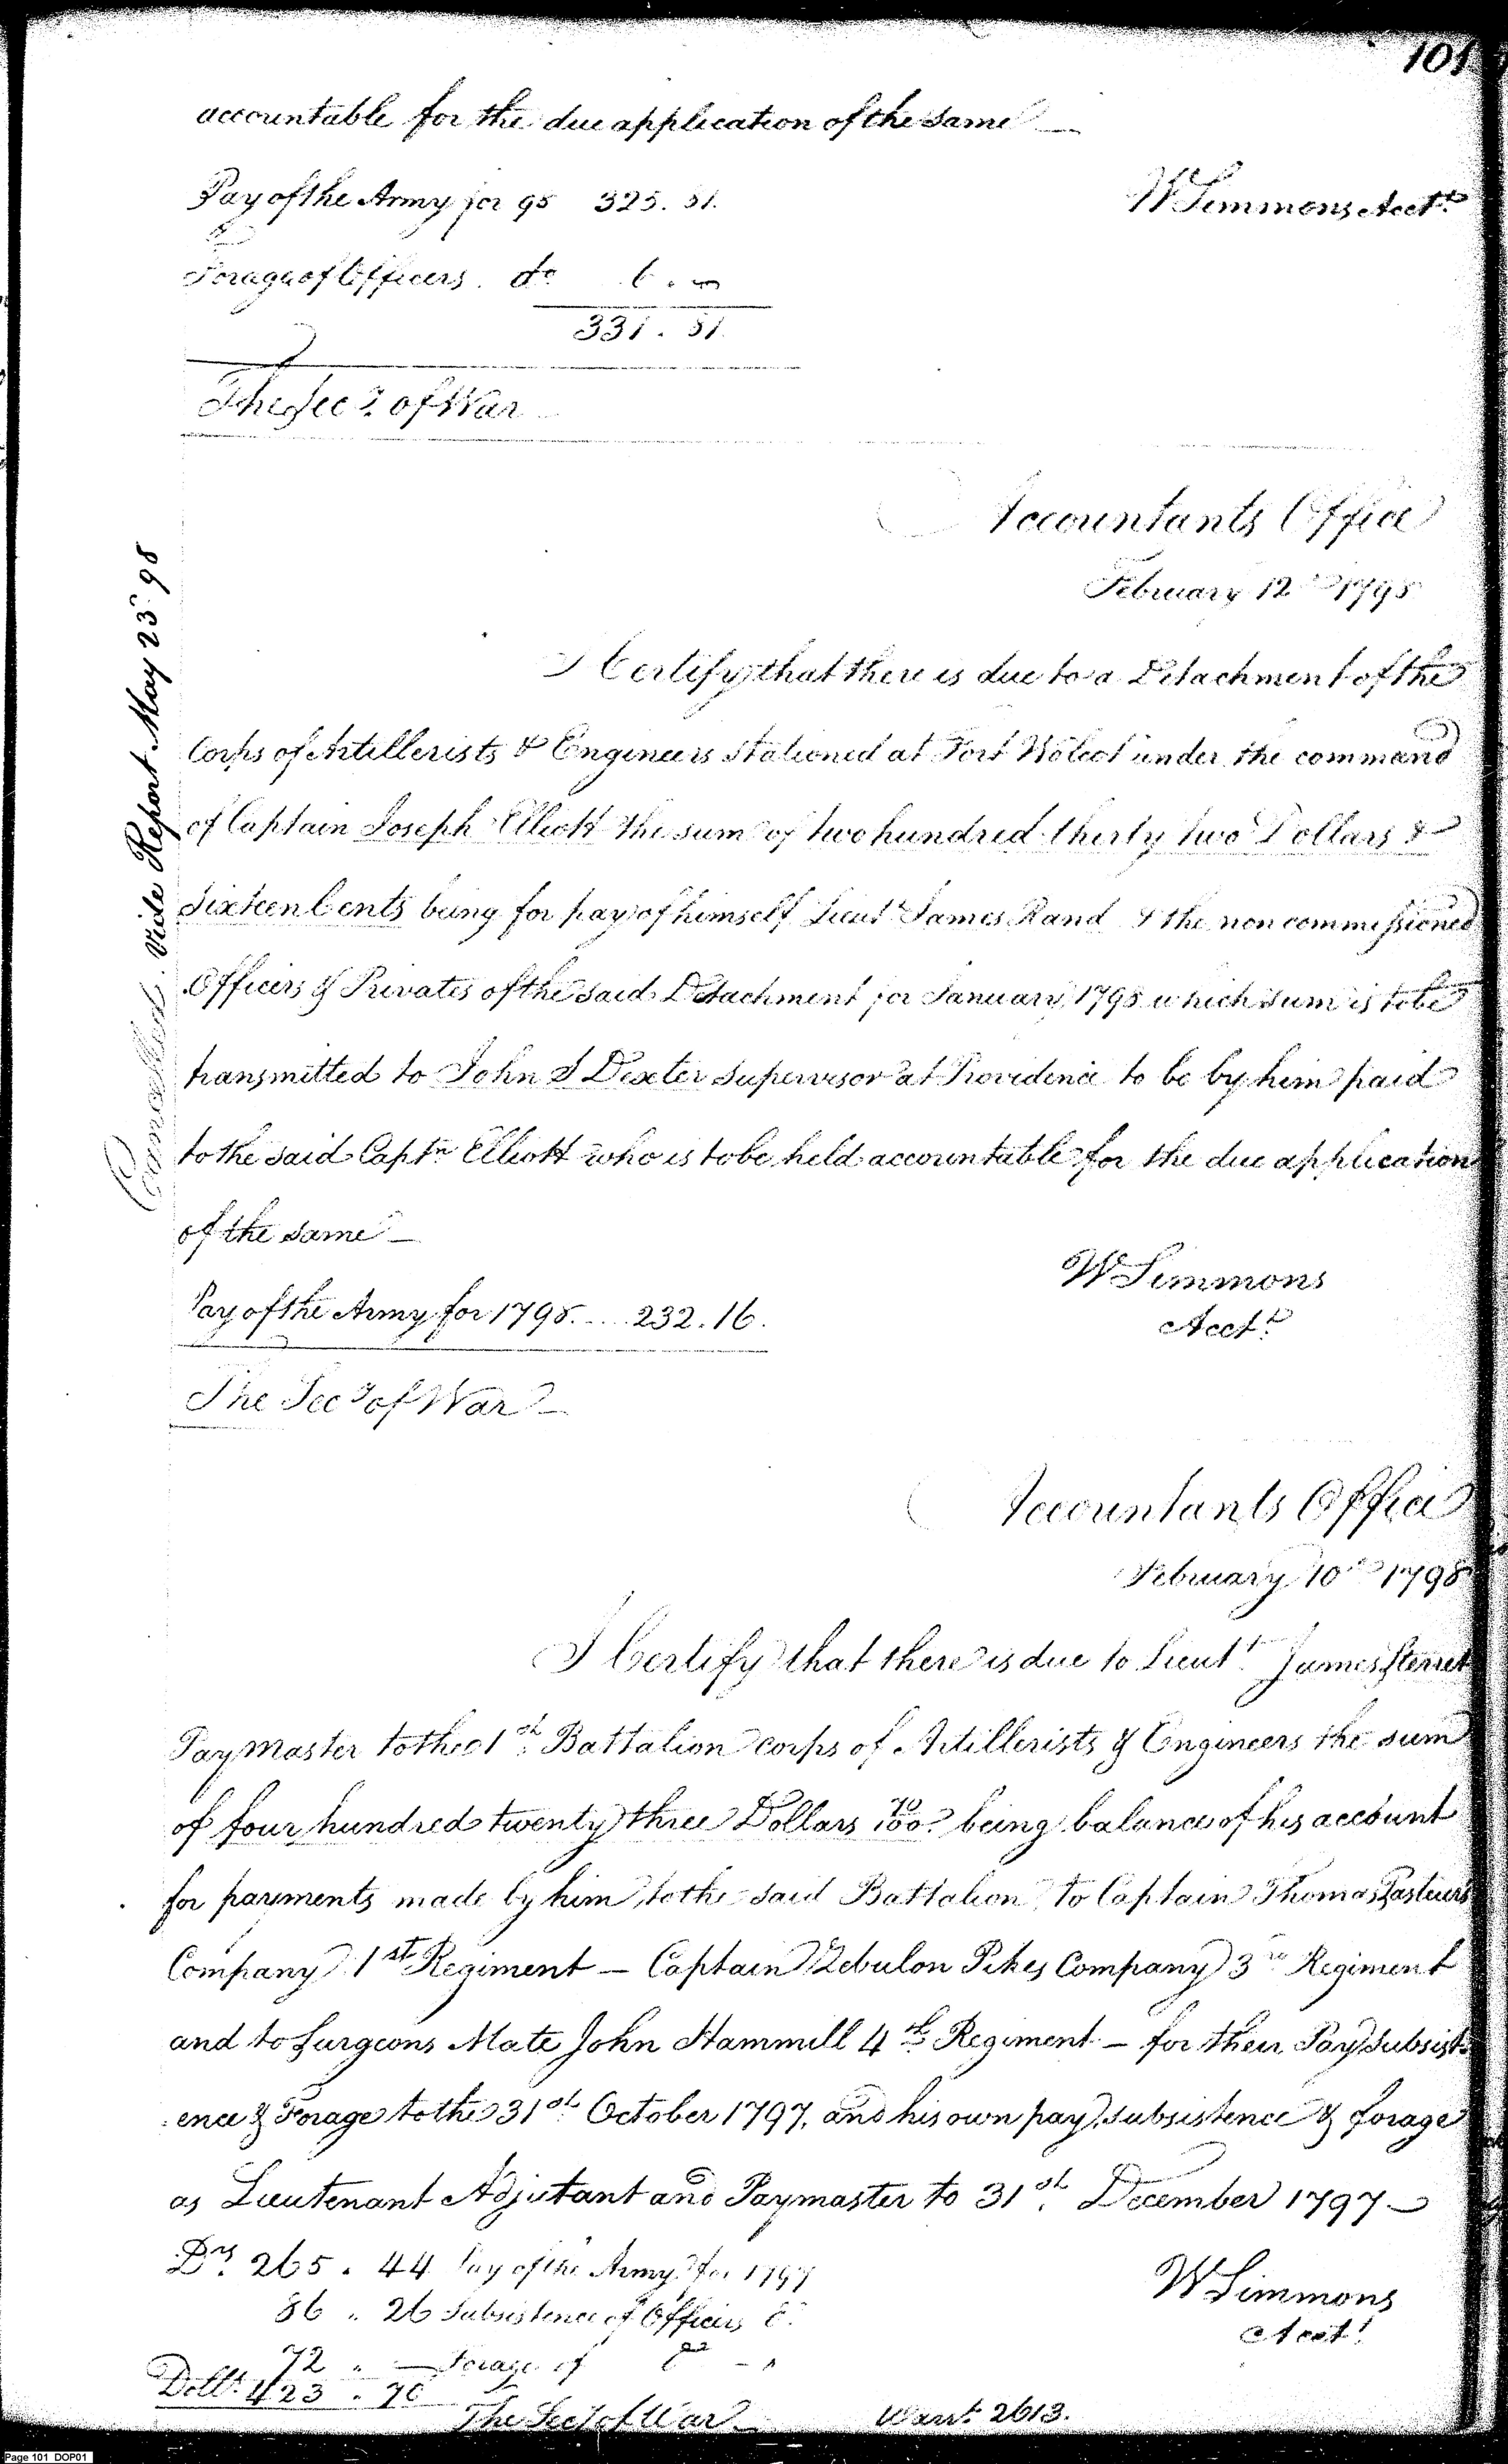 101
accountable for the due application of the same
Pay of the Army for 98 325. 51.
W Simmons Acct.t
Forage of Officers. do 6. "
331. 51.
The Sec.y of War
Accountants Office
February 12th 1798
I Certify that there is due to a Detachment of the
Corps of Artillerists & Engineers stationed at Fort Wolcot under the command
of Captain Joseph Elliott the sum of two hundred thirty two Dollars &
Sixteen Cents being for pay of himself Lieut.t James Rand & the non commissioned
Officers & Privates of the said Detachment for January 1798 which sum is to be
transmitted to John S Dexter Supervisor at Providence to be by him paid
to the said Capt.n Elliott who is to be held accountable for the due application
of the same
W Simmons
Pay of the Army for 1798.... 232. 16.
Acct.t
The Sec.y of War
Cancelled. Vide Report May 23d 98
Accountants Office
February 10th 1798
I Certify that there is due to Lieut.t James Sterret
Paymaster to the 1st Battalion corps of Artillerists & Engineers the sum
of four hundred twenty three Dollars 70/100 being balance of his account
for payments made by him to the said Battalion, to Captain Thomas Pasteurs
Company 1st Regiment — Captain Zebulon Pikes Company 3rd Regiment
and to Surgeons Mate John Hammill 4th Regiment — for their Pay Subsist-
ence & Forage to the 31st October 1797, and his own pay, subsistence & forage
as Lieutenant Adjutant and Paymaster to 31st December 1797 —
Drs 265. 44 Pay of the Army for 1797
W Simmons
86. 26 Subsistence of Officers
Acct.t
72 " — Forage of
Doll.s 423. 70
The Sec.y of War
Warr.t 2613.
Page 101 DOP01